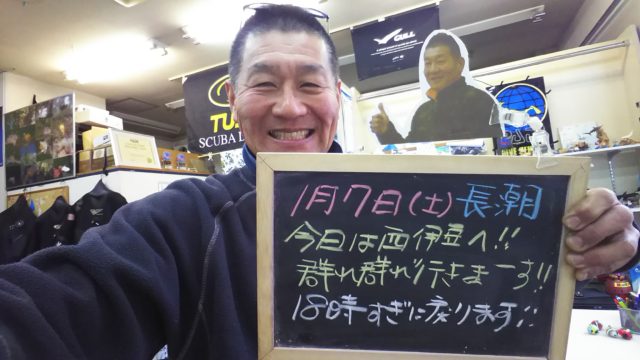 GULL
TUSA
SCUBA
1月7日(土)長潮
今日は西伊豆へ!!
群れ群れ行きまーす!!
18時すぎに戻ります!!